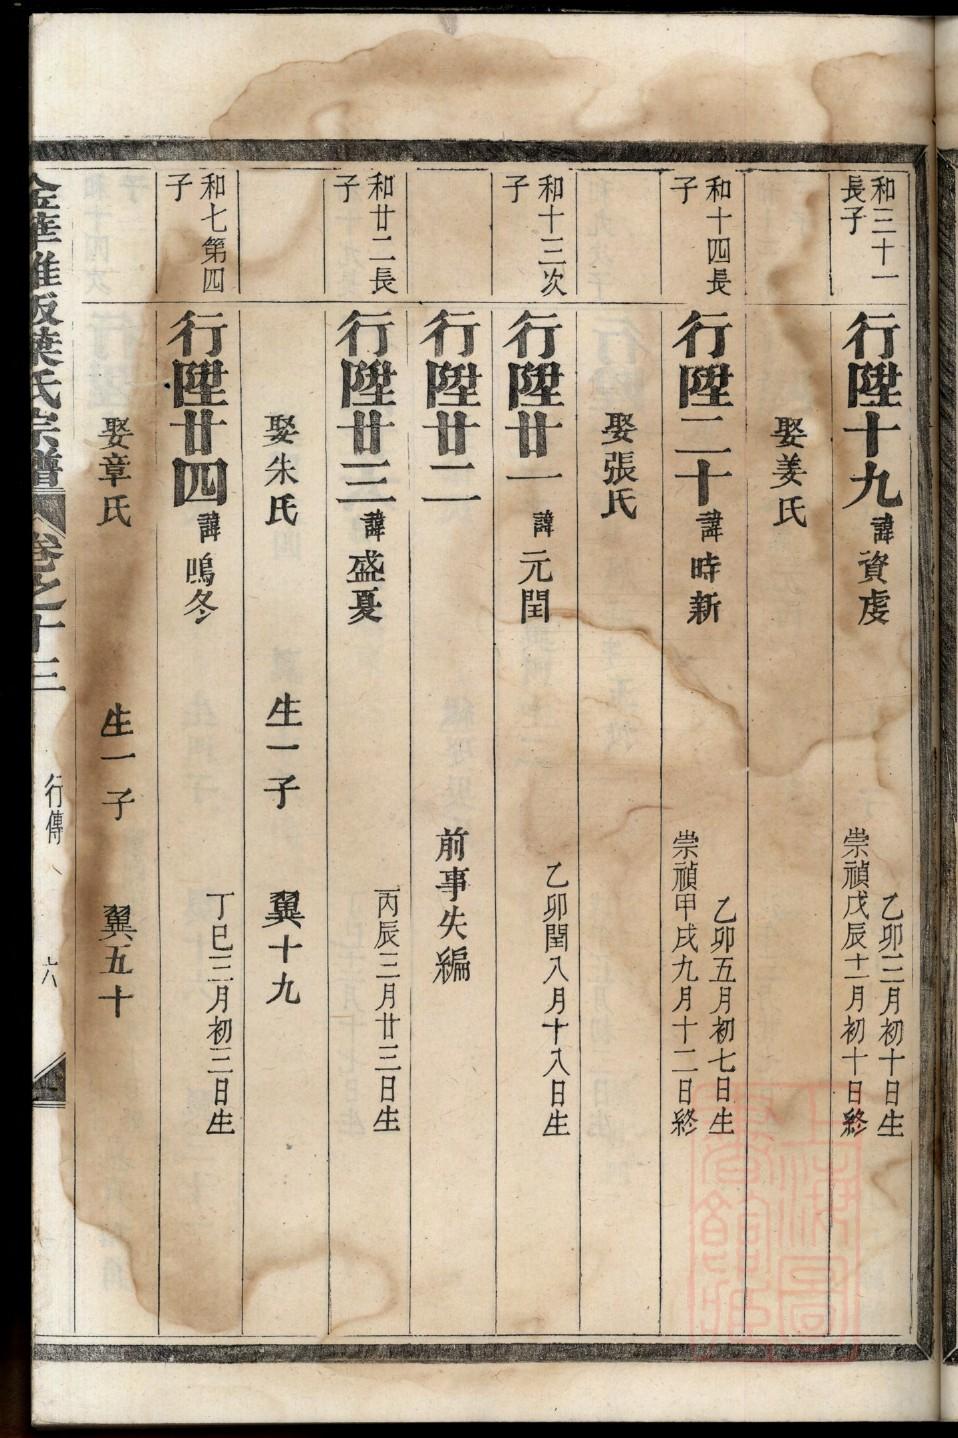 和三十一
長子
行陞十九諱資虔
乙卯三月初十日生
崇禎戊辰十一月初十日終
娶姜氏
和十四長
子
行陞二十諱時新
乙卯五月初七日生
崇禎甲戌九月十二日終
娶張氏
和十三次
子
行陞廿一諱元閏
乙卯閏八月十八日生
行陞廿二
前事失編
和廿二長
子
行陞廿三諱盛夏
丙辰三月廿三日生
娶朱氏 生一子 翼十九
和七第四
子
行陞廿四諱鳴冬
丁巳三月初三日生
娶章氏 生一子 翼五十
金華 葉氏宗譜 卷之十三 行傳 六
上海圖書館藏